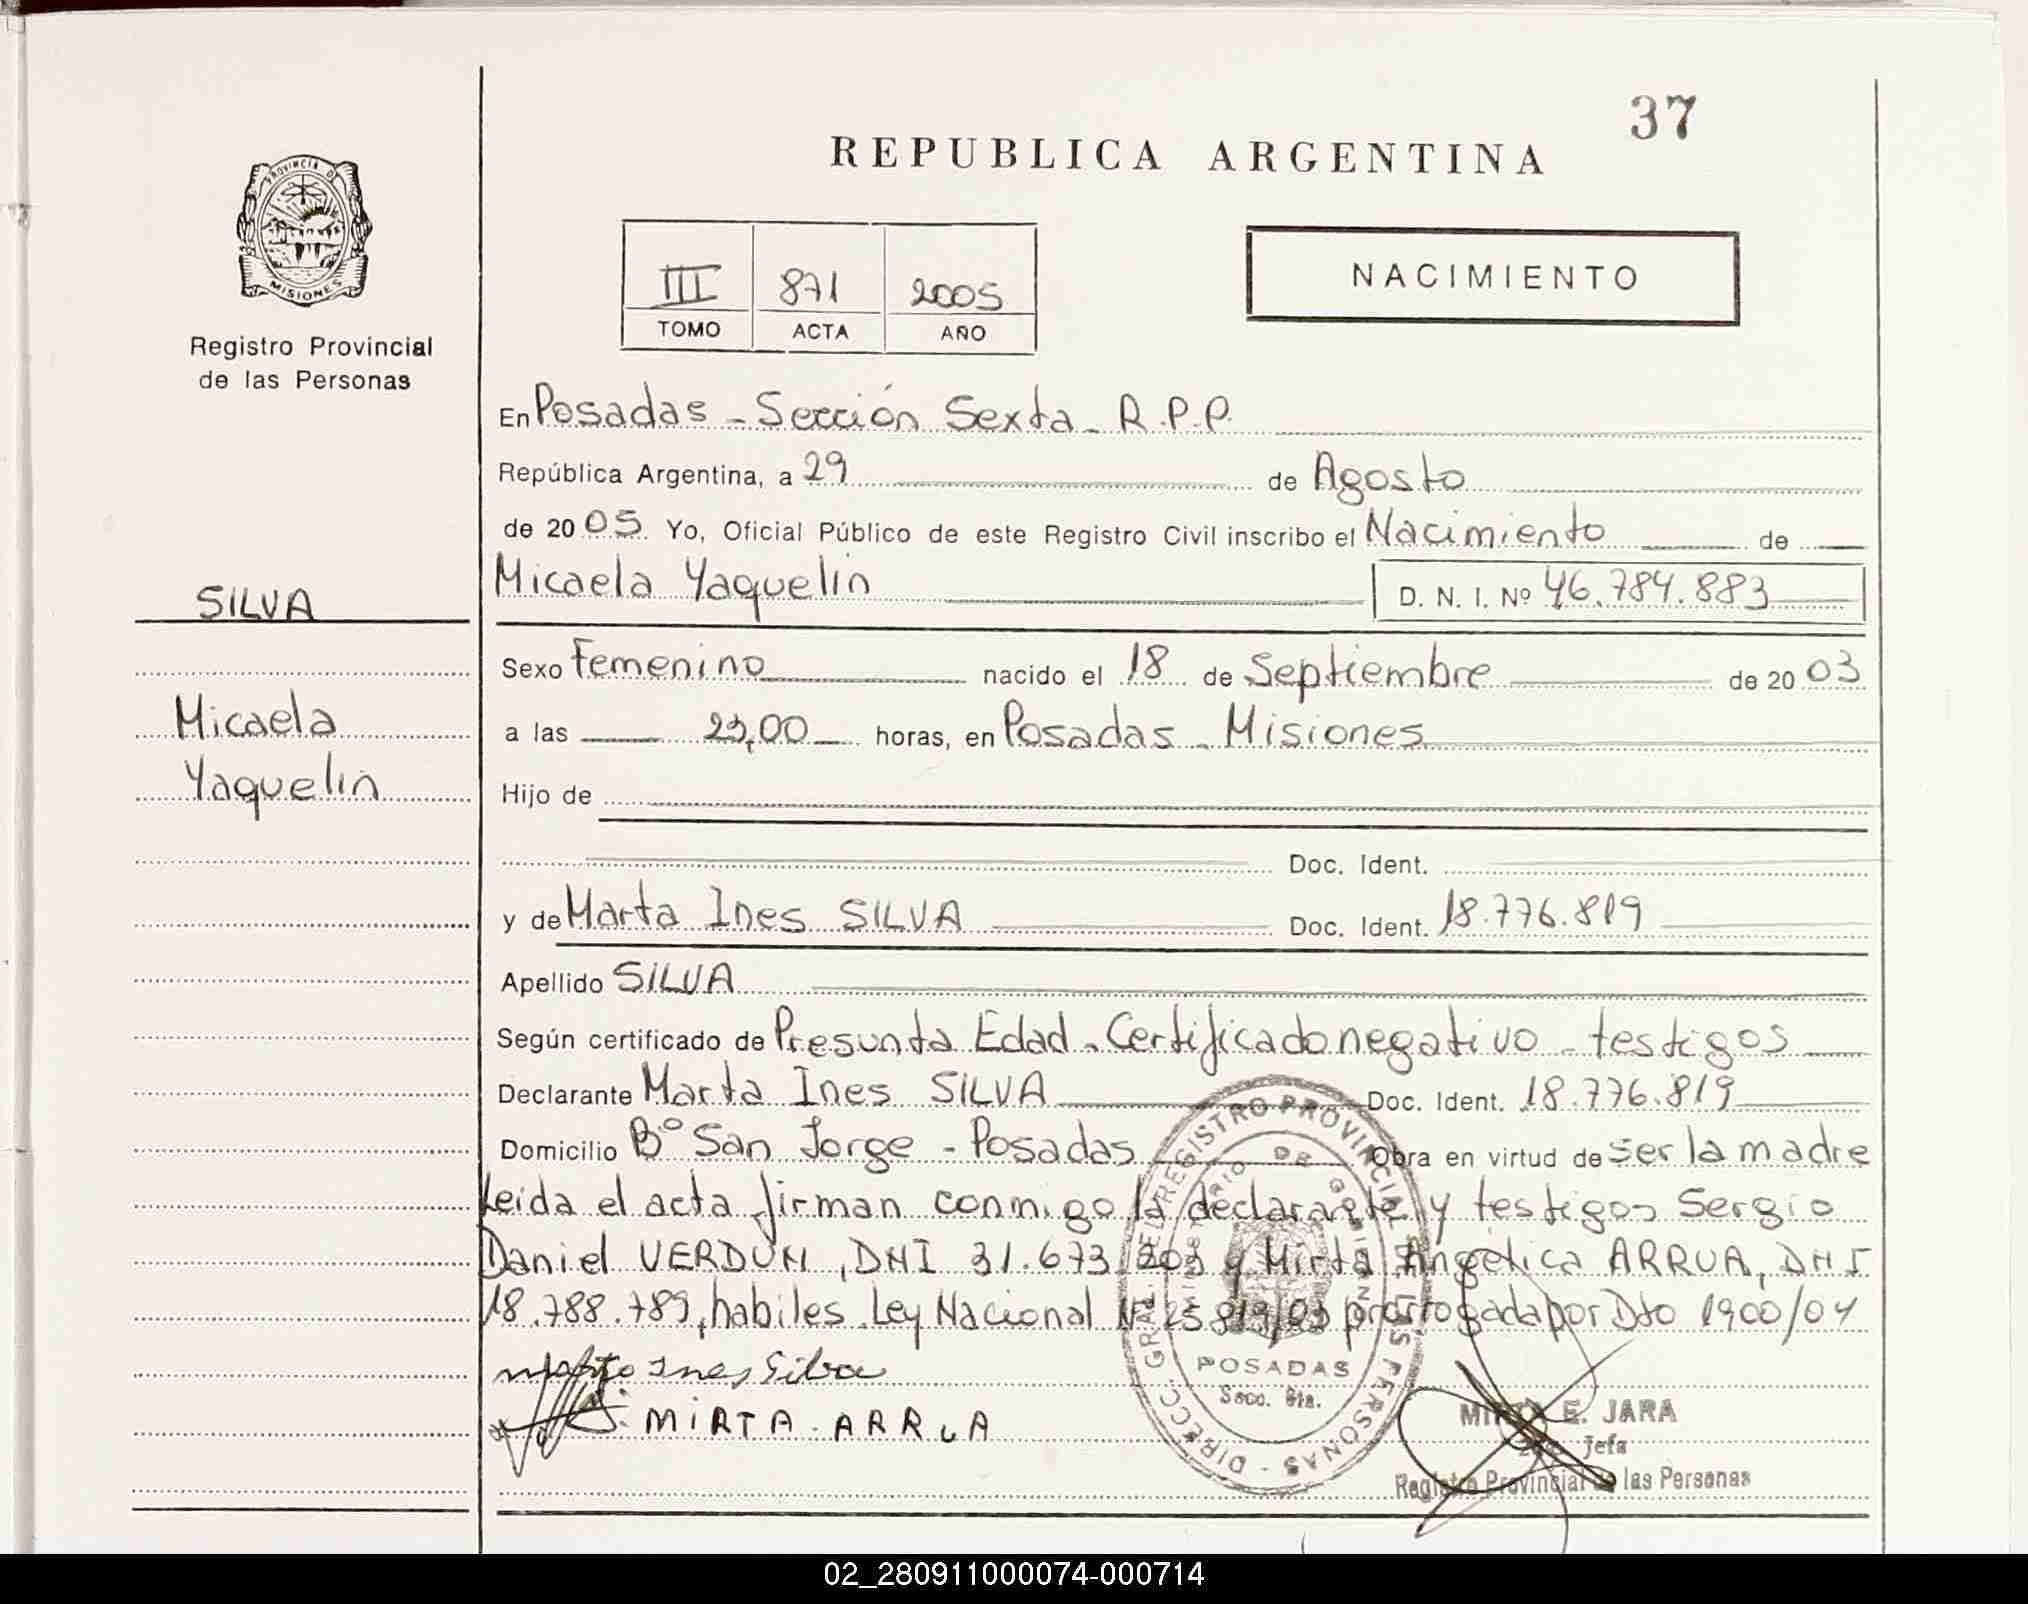 37
REPUBLICA ARGENTINA
PROVINCIA DE
MISIONES
Registro Provincial
de las Personas
III 871 2005
TOMO ACTA AÑO
NACIMIENTO
En Posadas - Sección Sexta - R.P.P.
República Argentina, a 29 de Agosto
de 2005. Yo, Oficial Público de este Registro Civil inscribo el Nacimiento de
SILVA
Micaela Yaquelin D. N. I. Nº 46.784.883
Sexo Femenino nacido el 18 de Septiembre de 2003
Micaela
a las 23,00 horas, en Posadas - Misiones
Yaquelin
Hijo de
Doc. Ident.
y de Marta Ines SILVA Doc. Ident. 18.776.819
Apellido SILVA
Según certificado de Presunta Edad - Certificado negativo - testigos
Declarante Marta Ines SILVA Doc. Ident. 18.776.819
Domicilio Bº San Jorge - Posadas Obra en virtud de ser la madre
Leida el acta firman conmigo la declarante y testigos Sergio
Daniel VERDUN, DNI 31.673.203 y Mirta Angelica ARRUA, DNI
18.788.789, habiles. Ley Nacional Nº 25.819/03 prorrogada por Dto 1900/04
Ines Silva
MIRTA ARRUA
DIRECC. GRAL. DEL REGISTRO PROVINCIAL DE LAS PERSONAS
MINISTERIO DE GOBIERNO
POSADAS
Secc. 6ta.
MIRTA E. JARA
Jefa
Registro Provincial de las Personas
02_280911000074-000714